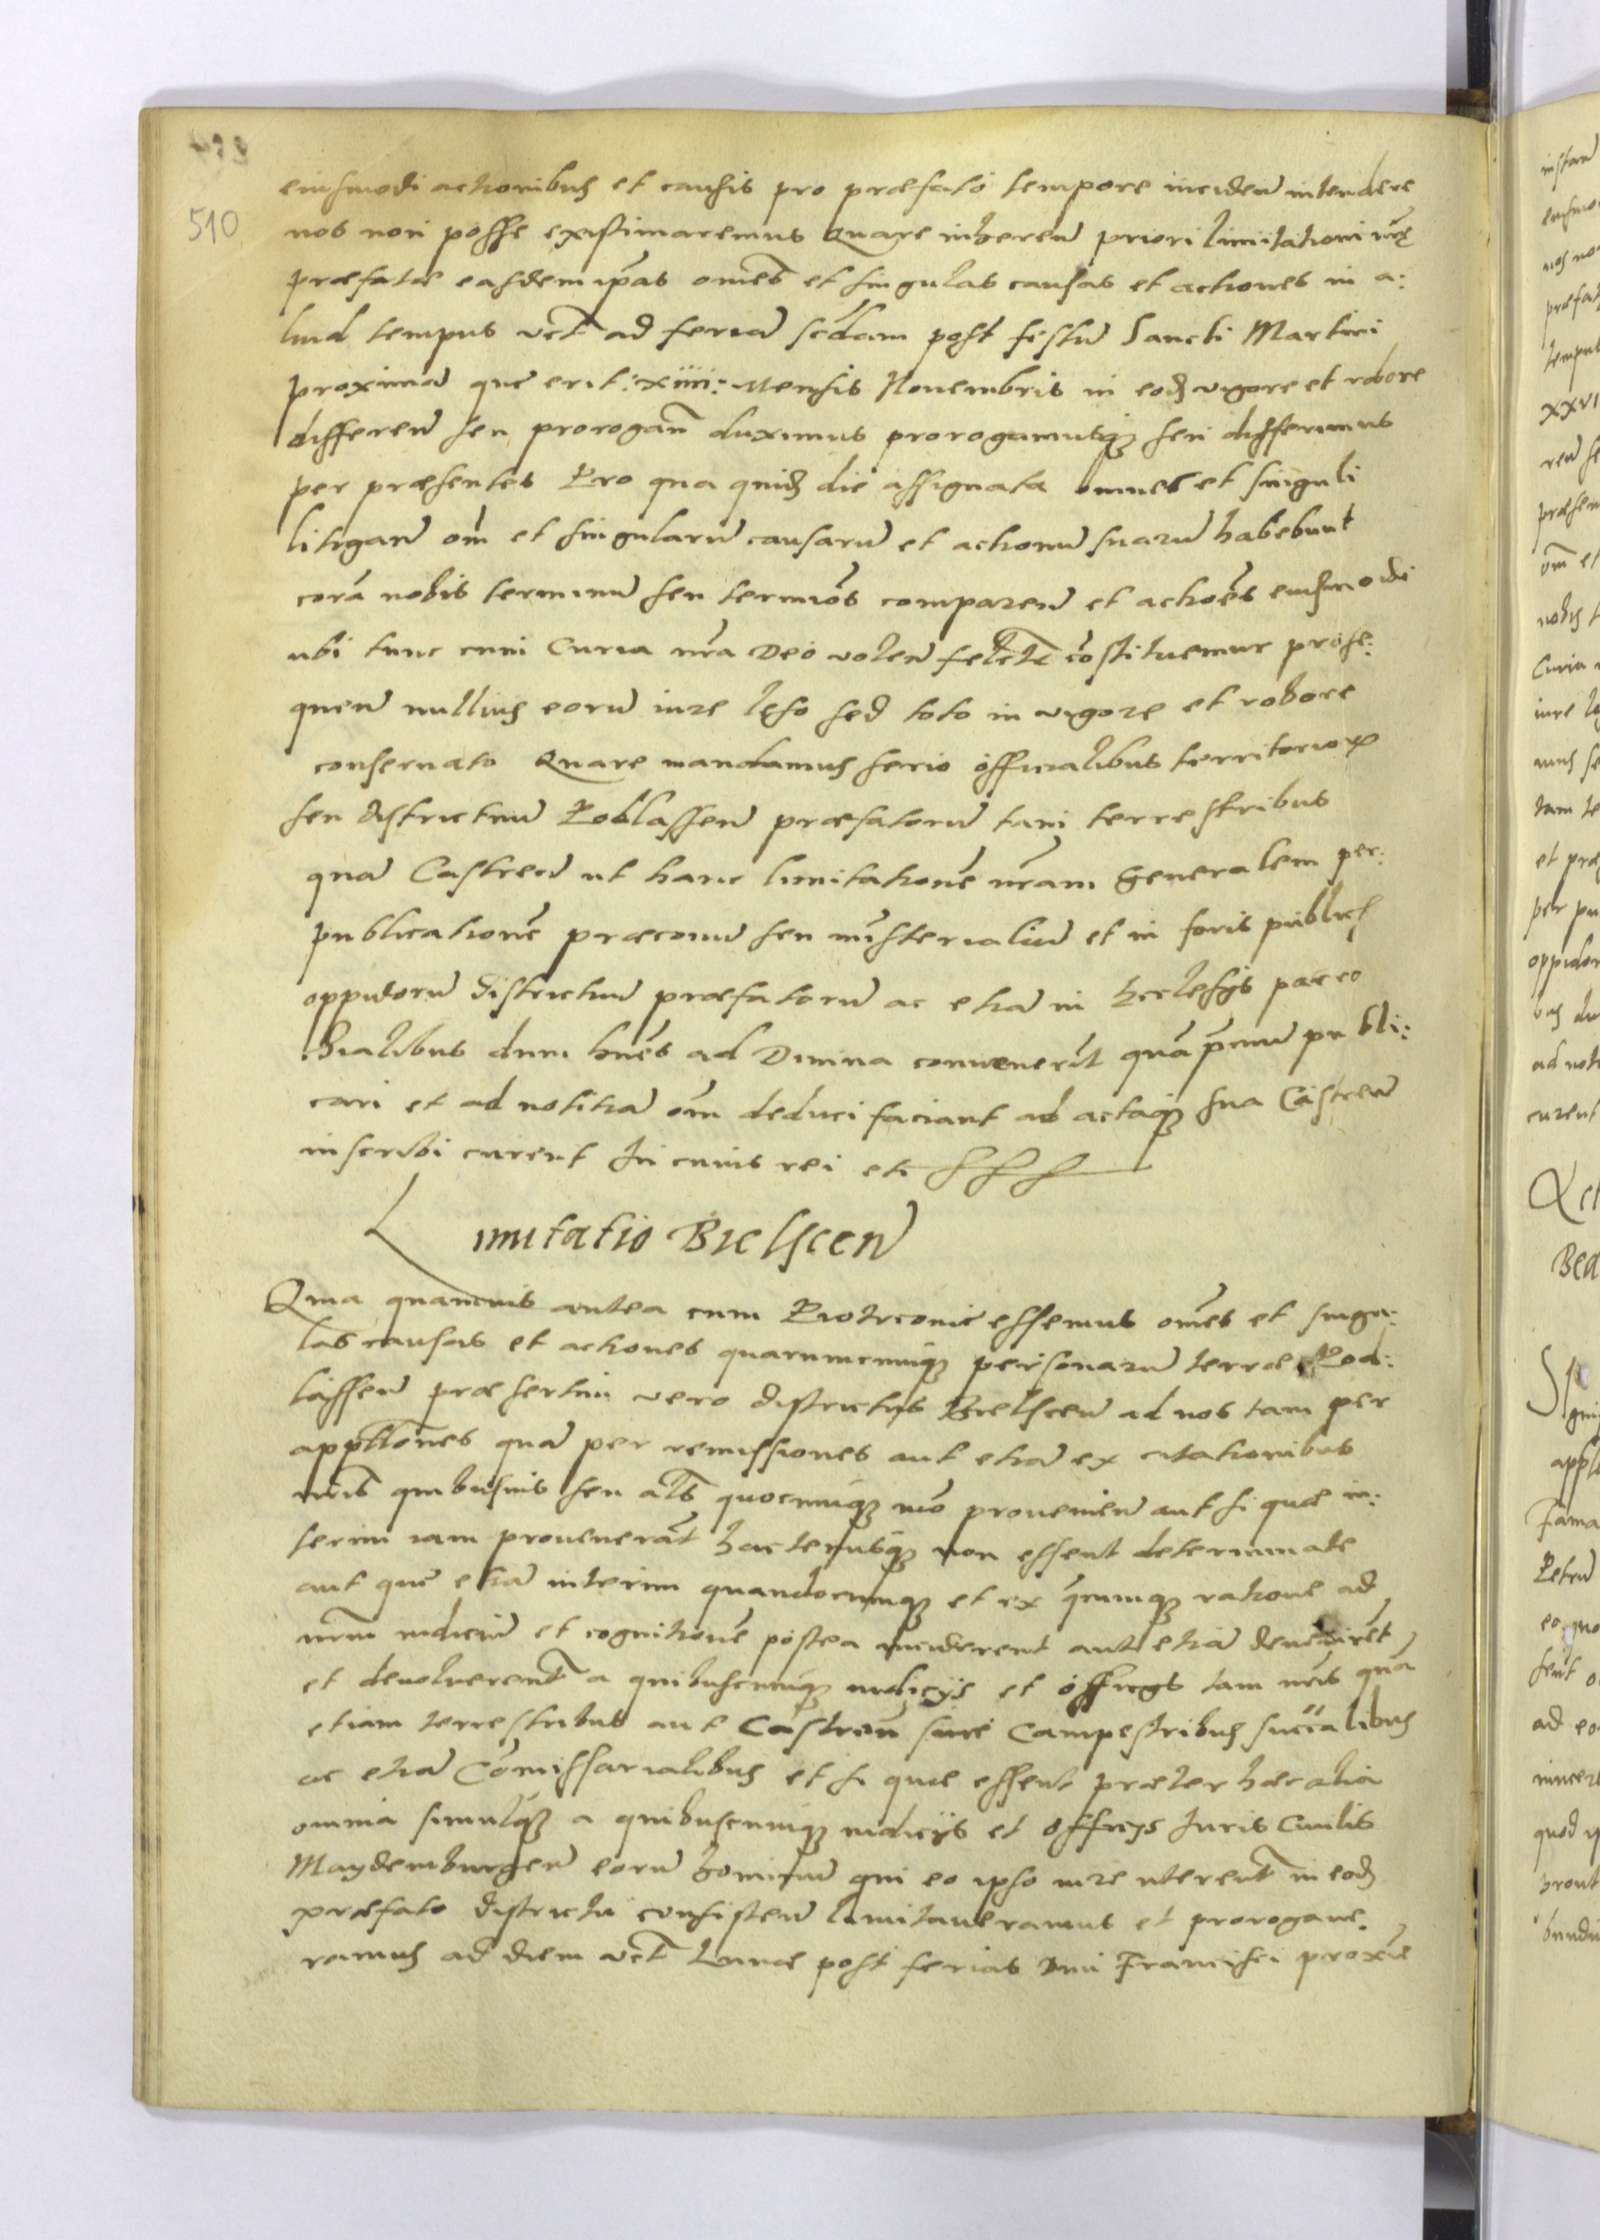 510
eiusmodi actionibus et causis pro præfato tempore inciden intendere
nos non posse existimaremus Quare inheren priori limitationi nrę
præfatæ easdem ipsas omes et singulas causas et actiones in a:
liud tempus vct ad feria scdam post festu Sancti Martini
proxima que erit: xiiii: Mensis Nouembris in eod vigore et robore
differen seu prorogan duximus prorogamusq seu differimus
per præsentes Pro qua quid die assignata omnes et singuli
litigan om et singularu causaru et actionu suaru habebunt
cora nobis terminu seu termios comparen et actioes eiusmodi
ubi tunc cum Curia nra Deo volen felcte costituemur prose:
quen nullius eoru iure lęso sed toto in vigore et robore
conseruato Quare mandamus serio officialibus territorior
seu districtuu Podlassen præfatoru tam terrestribus
qua Castren ut hanc limitatione nram Generalem per:
publicatione præconu seu misterialiu et in foris public
oppidoru districtuu præfatoru ac etia in Ecclesys paro
chialibus dum hoies ad Diuina conuenerit qua pmu publi:
cari et ad notitia om deduci faciant ad actaq sua Castren
inscribi curent In cuius rei etc
Limitatio Bielscen
Quia quamuis antea cum Piotrconie essemus omes et singu:
las causas et actiones quarumcumq personaru terræ Pod:
lassen præsertim vero districtus Bielscen ad nos tam per
appltiones qua per remissiones aut etia ex citationibus
nris quibusuis seu als quocumq mo prouenien aut si quæ in:
terim iam prouenerat hactenusq non essent determinate
aut que etia interim quandocumq et ex qcumq ratione ad
nrm iudiciu et cognitione postea inciderent aut etia deueniret
et deuoluerent a quibuscumq iudicys et officys tam nris qua
etiam terrestribus aut Castren siue Campestribus succalibus
ac etia Comissarialibus et si quæ essent præter hæc alia
omnia simulq a quibuscumq iudicys et Officys Iuris Ciuilis
Maydemburgen eoru hominu qui eo ipso iure uterent in eod
præfato districtu consisten limitaueramus et prorogaue:
ramus ad diem vct Lunæ post ferias Diui Francisci proxie